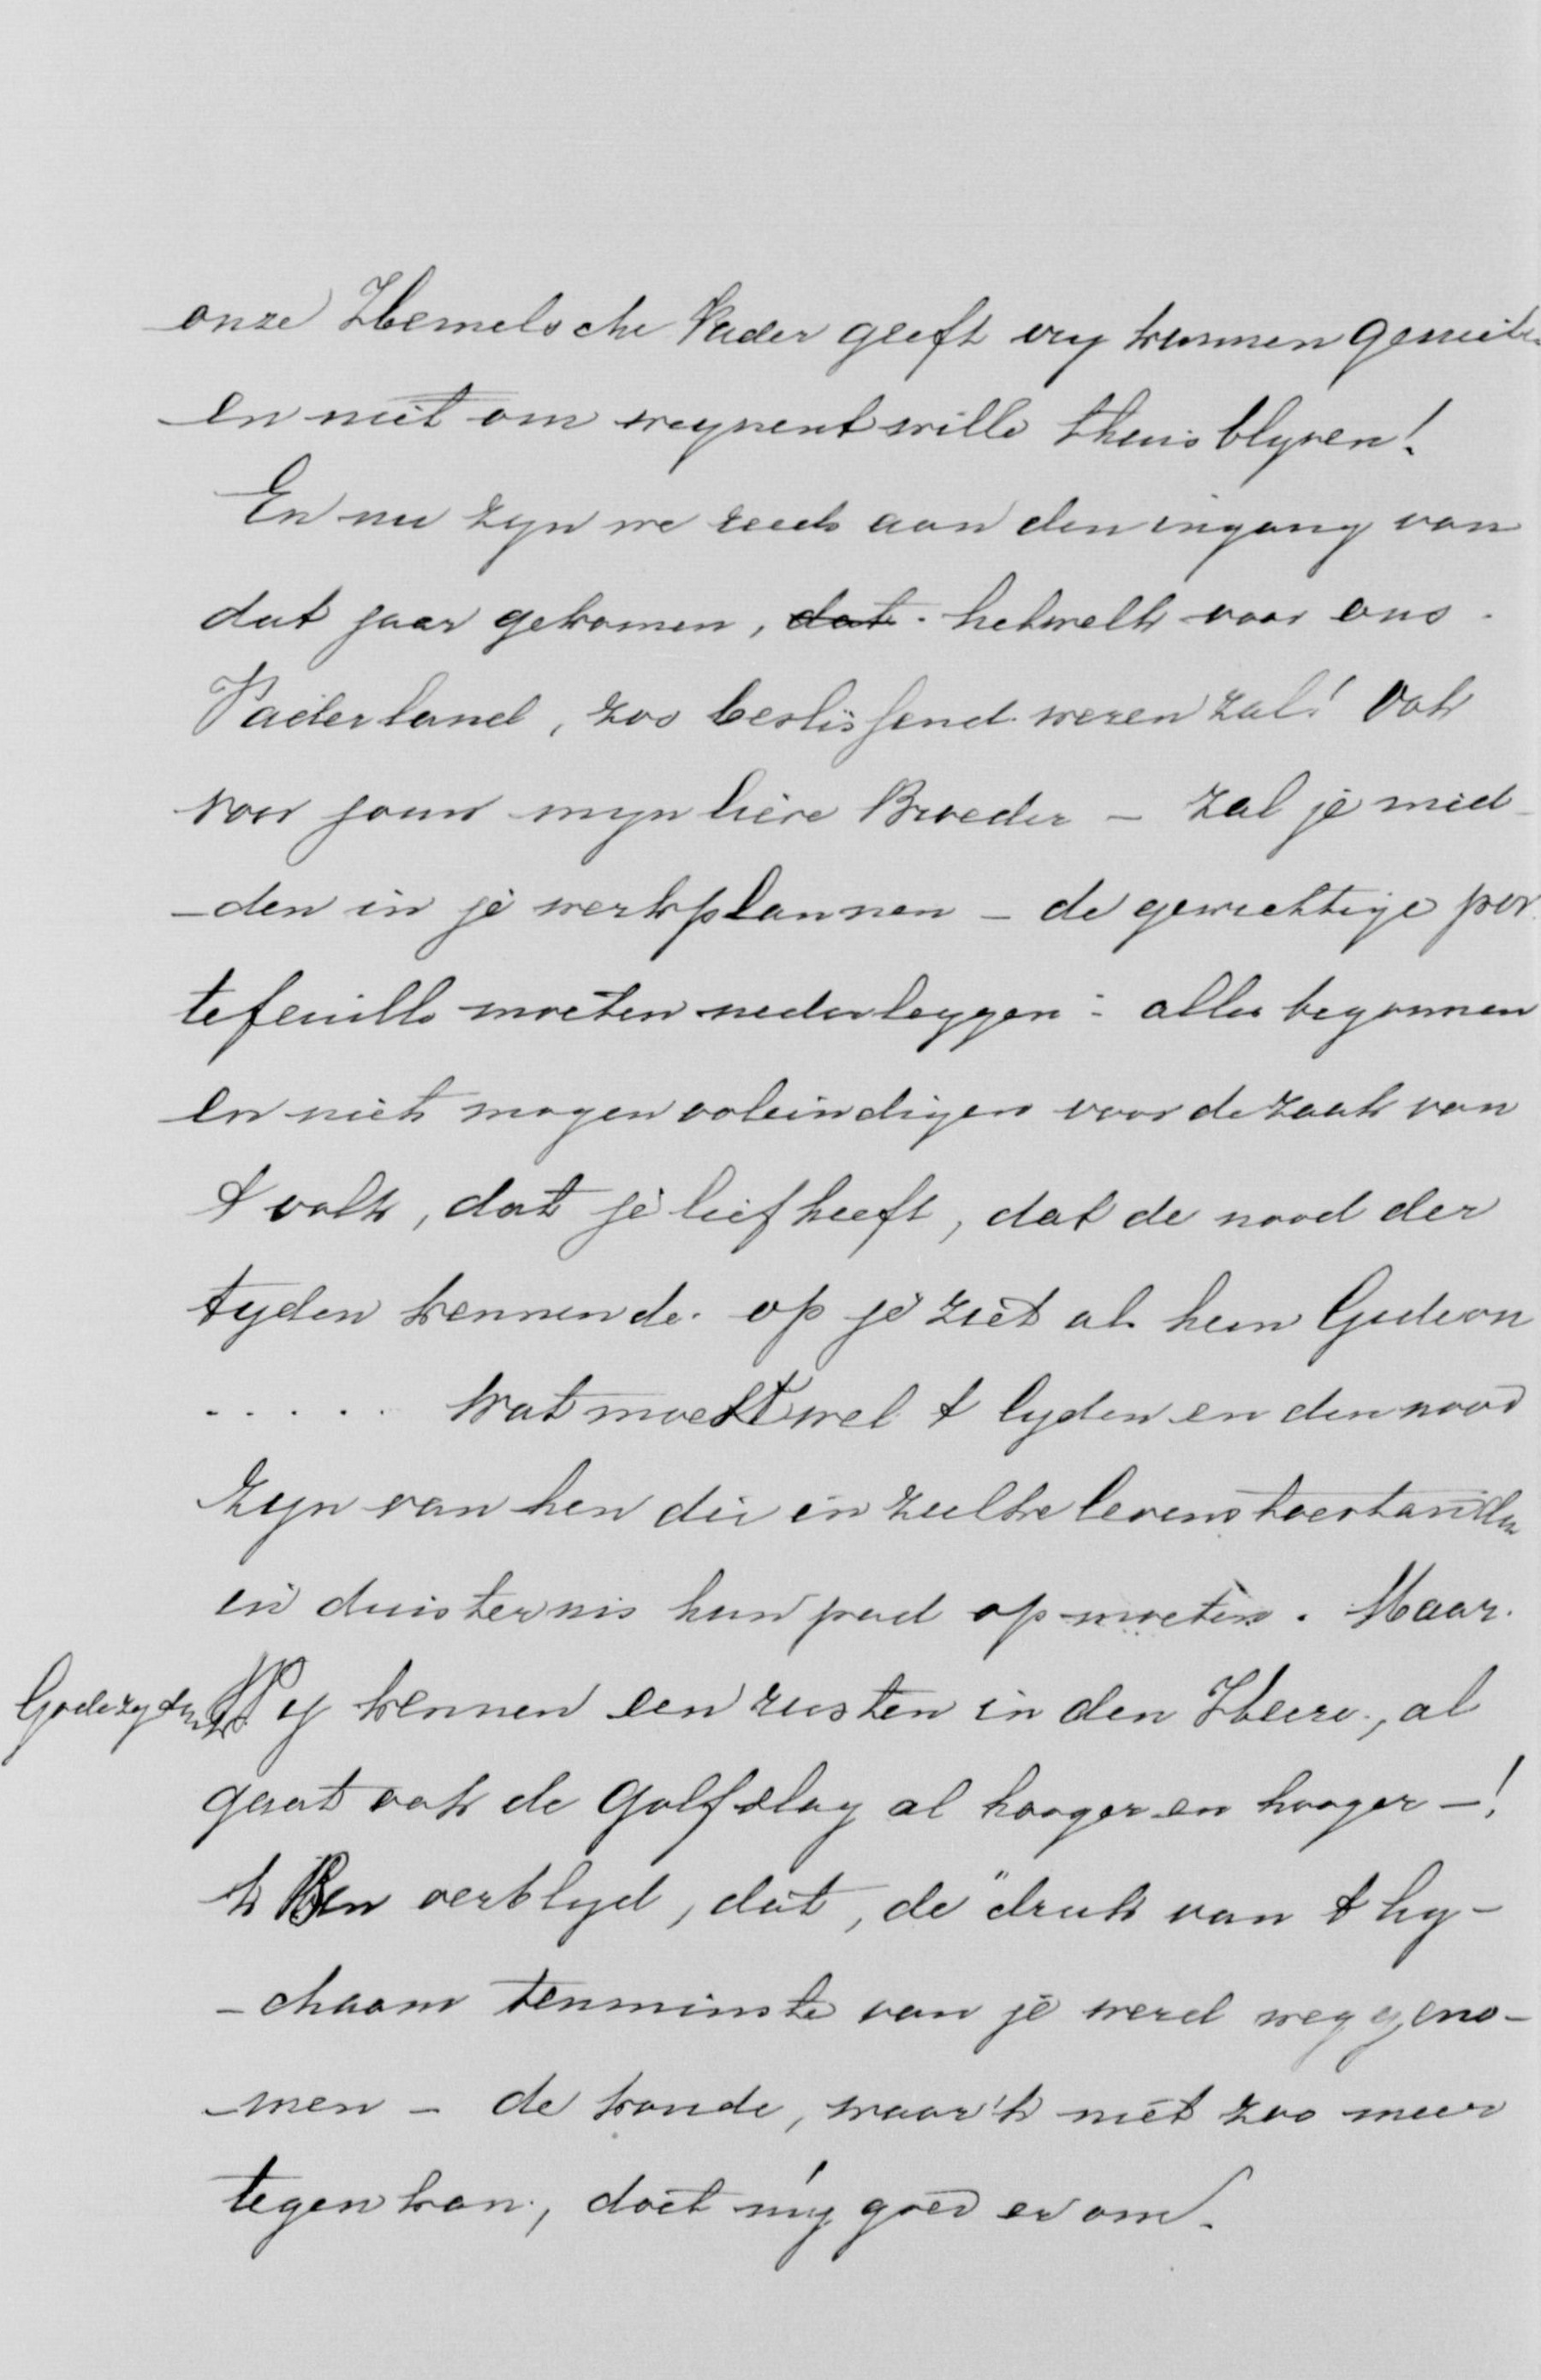 onze Hemelsche Vader geeft vry kunnen geniete
en niet om mynentwille thuis blyven!
En nu zyn we reeds aan den ingang van
dat jaar gekomen, dat hetwelk voor ons
Vaderland, zoo beslissend wezen zal! Ook
voor jouw myn lieve Broeder – zal je mid-
-den in je werkplannen – de gewichtige por
tefeuille moeten nederleggen: alles begonnen
en niet mogen voleindigen voor de zaak van
't volk, dat je liefheeft, dat de nood der
tyden kennende op je ziet als hun Gideon
..... Wat moet wel 't lyden en den nood
zyn van hen die in zulke levenstoestanden
in duisternis hun pad op moeten. Maar
Godezydank Wy kennen een rusten in den Heere, al
gaat ook de golfslag al hooger en hooger –!
k Ben verblyd, dat, de "druk van 't ly-
-chaam tenminste van je werd weggeno-
-men – de koude, waar 'k niet zoo meer
tegen kan, doet my goed er om.